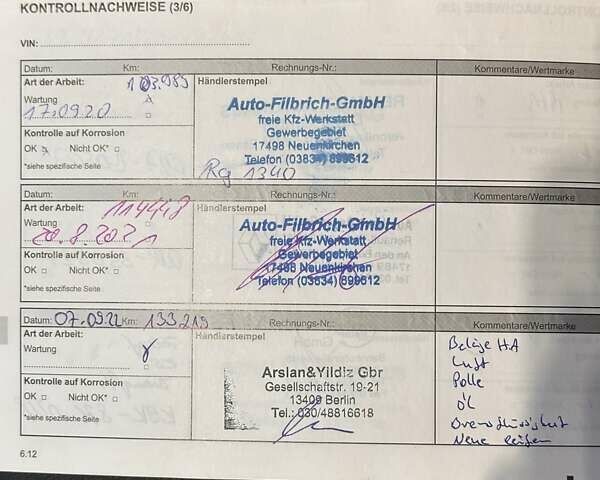 KONTROLLNACHWEISE (3/6)
VIN:
Datum: Km: Rechnungs-Nr.: Kommentare/Wertmarke
Art der Arbeit: 103.989 Händlerstempel
Wartung
17.09.20
Auto-Filbrich-GmbH
freie Kfz-Werkstatt
Gewerbegebiet
17498 Neuenkirchen
Telefon (03834) 899612
Rg 1340
Kontrolle auf Korrosion
OK Nicht OK*
*siehe spezifische Seite
Datum: Km: Rechnungs-Nr.: Kommentare/Wertmarke
Art der Arbeit: 114448 Händlerstempel
Wartung
20.8.2021
Auto-Filbrich-GmbH
freie Kfz-Werkstatt
Gewerbegebiet
17498 Neuenkirchen
Telefon (03834) 899612
Kontrolle auf Korrosion
OK Nicht OK*
*siehe spezifische Seite
Datum: 07.09.22 Km: 133.219 Rechnungs-Nr.: Kommentare/Wertmarke
Art der Arbeit: Händlerstempel
Wartung
Arslan&Yildiz Gbr
Gesellschaftstr. 19-21
13409 Berlin
Tel.: 030/48816618
Kontrolle auf Korrosion
OK Nicht OK*
*siehe spezifische Seite
Beläge HA
Luft
Polle
Öl
Bremsflüssigkeit
Neue Reifen
6.12